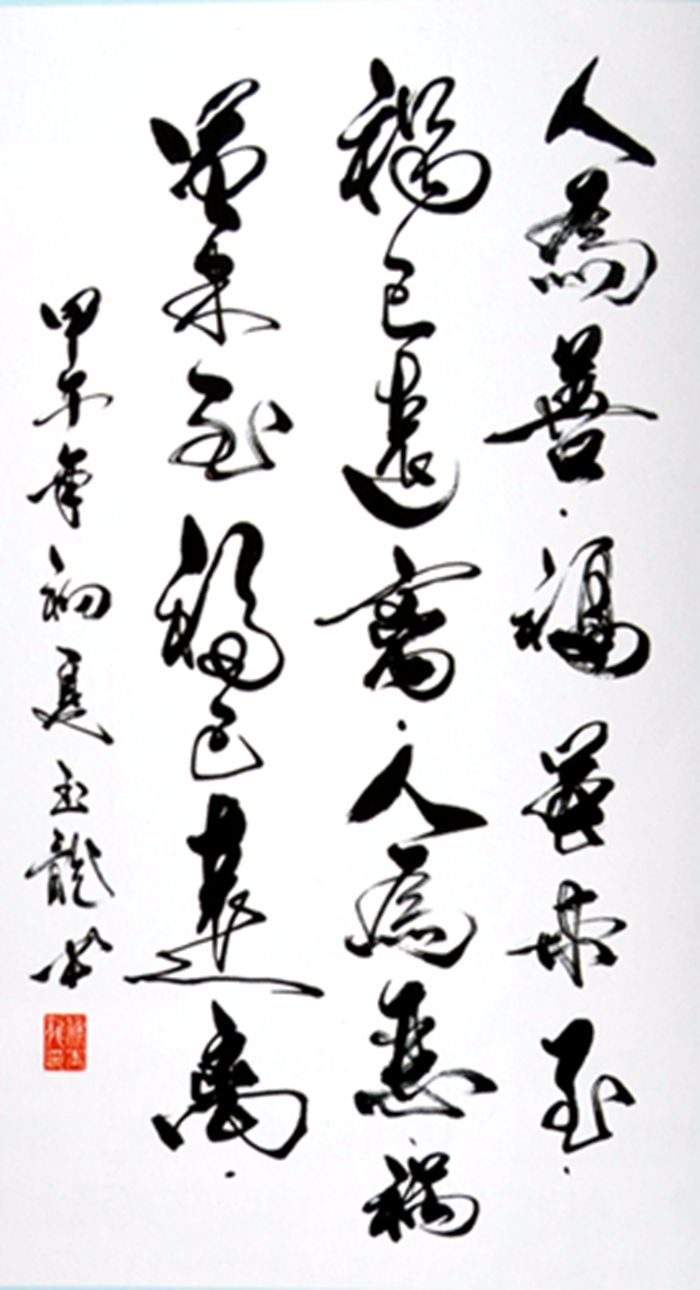 人為善福虽未至
禍已遠离人為惡禍
虽未至福已遠离
甲午年初夏玉龍书